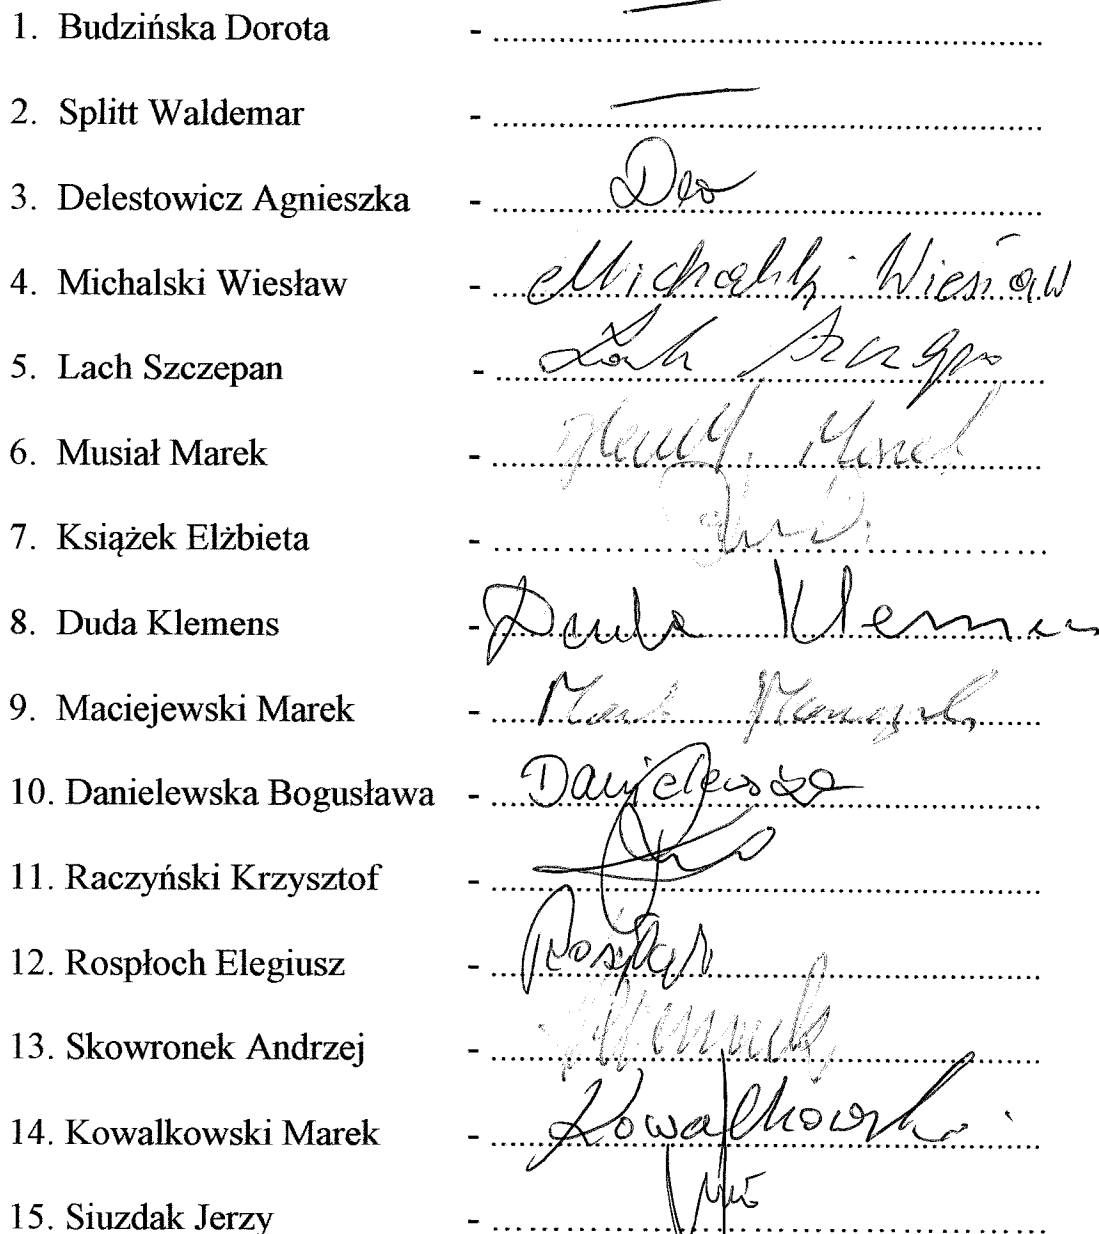 1. Budzińska Dorota - ..........
2. Splitt Waldemar - ..........
3. Delestowicz Agnieszka - ..........
4. Michalski Wiesław - .......... Michalski Wiesław
5. Lach Szczepan - .......... Lach Szczepan
6. Musiał Marek - .......... Marek
7. Książek Elżbieta - ..........
8. Duda Klemens - .......... Duda Klemens
9. Maciejewski Marek - .......... Marek
10. Danielewska Bogusława - .......... Danielewska
11. Raczyński Krzysztof - ..........
12. Rospłoch Elegiusz - ..........
13. Skowronek Andrzej - ..........
14. Kowalkowski Marek - .......... Kowalkowski
15. Siuzdak Jerzy - ..........